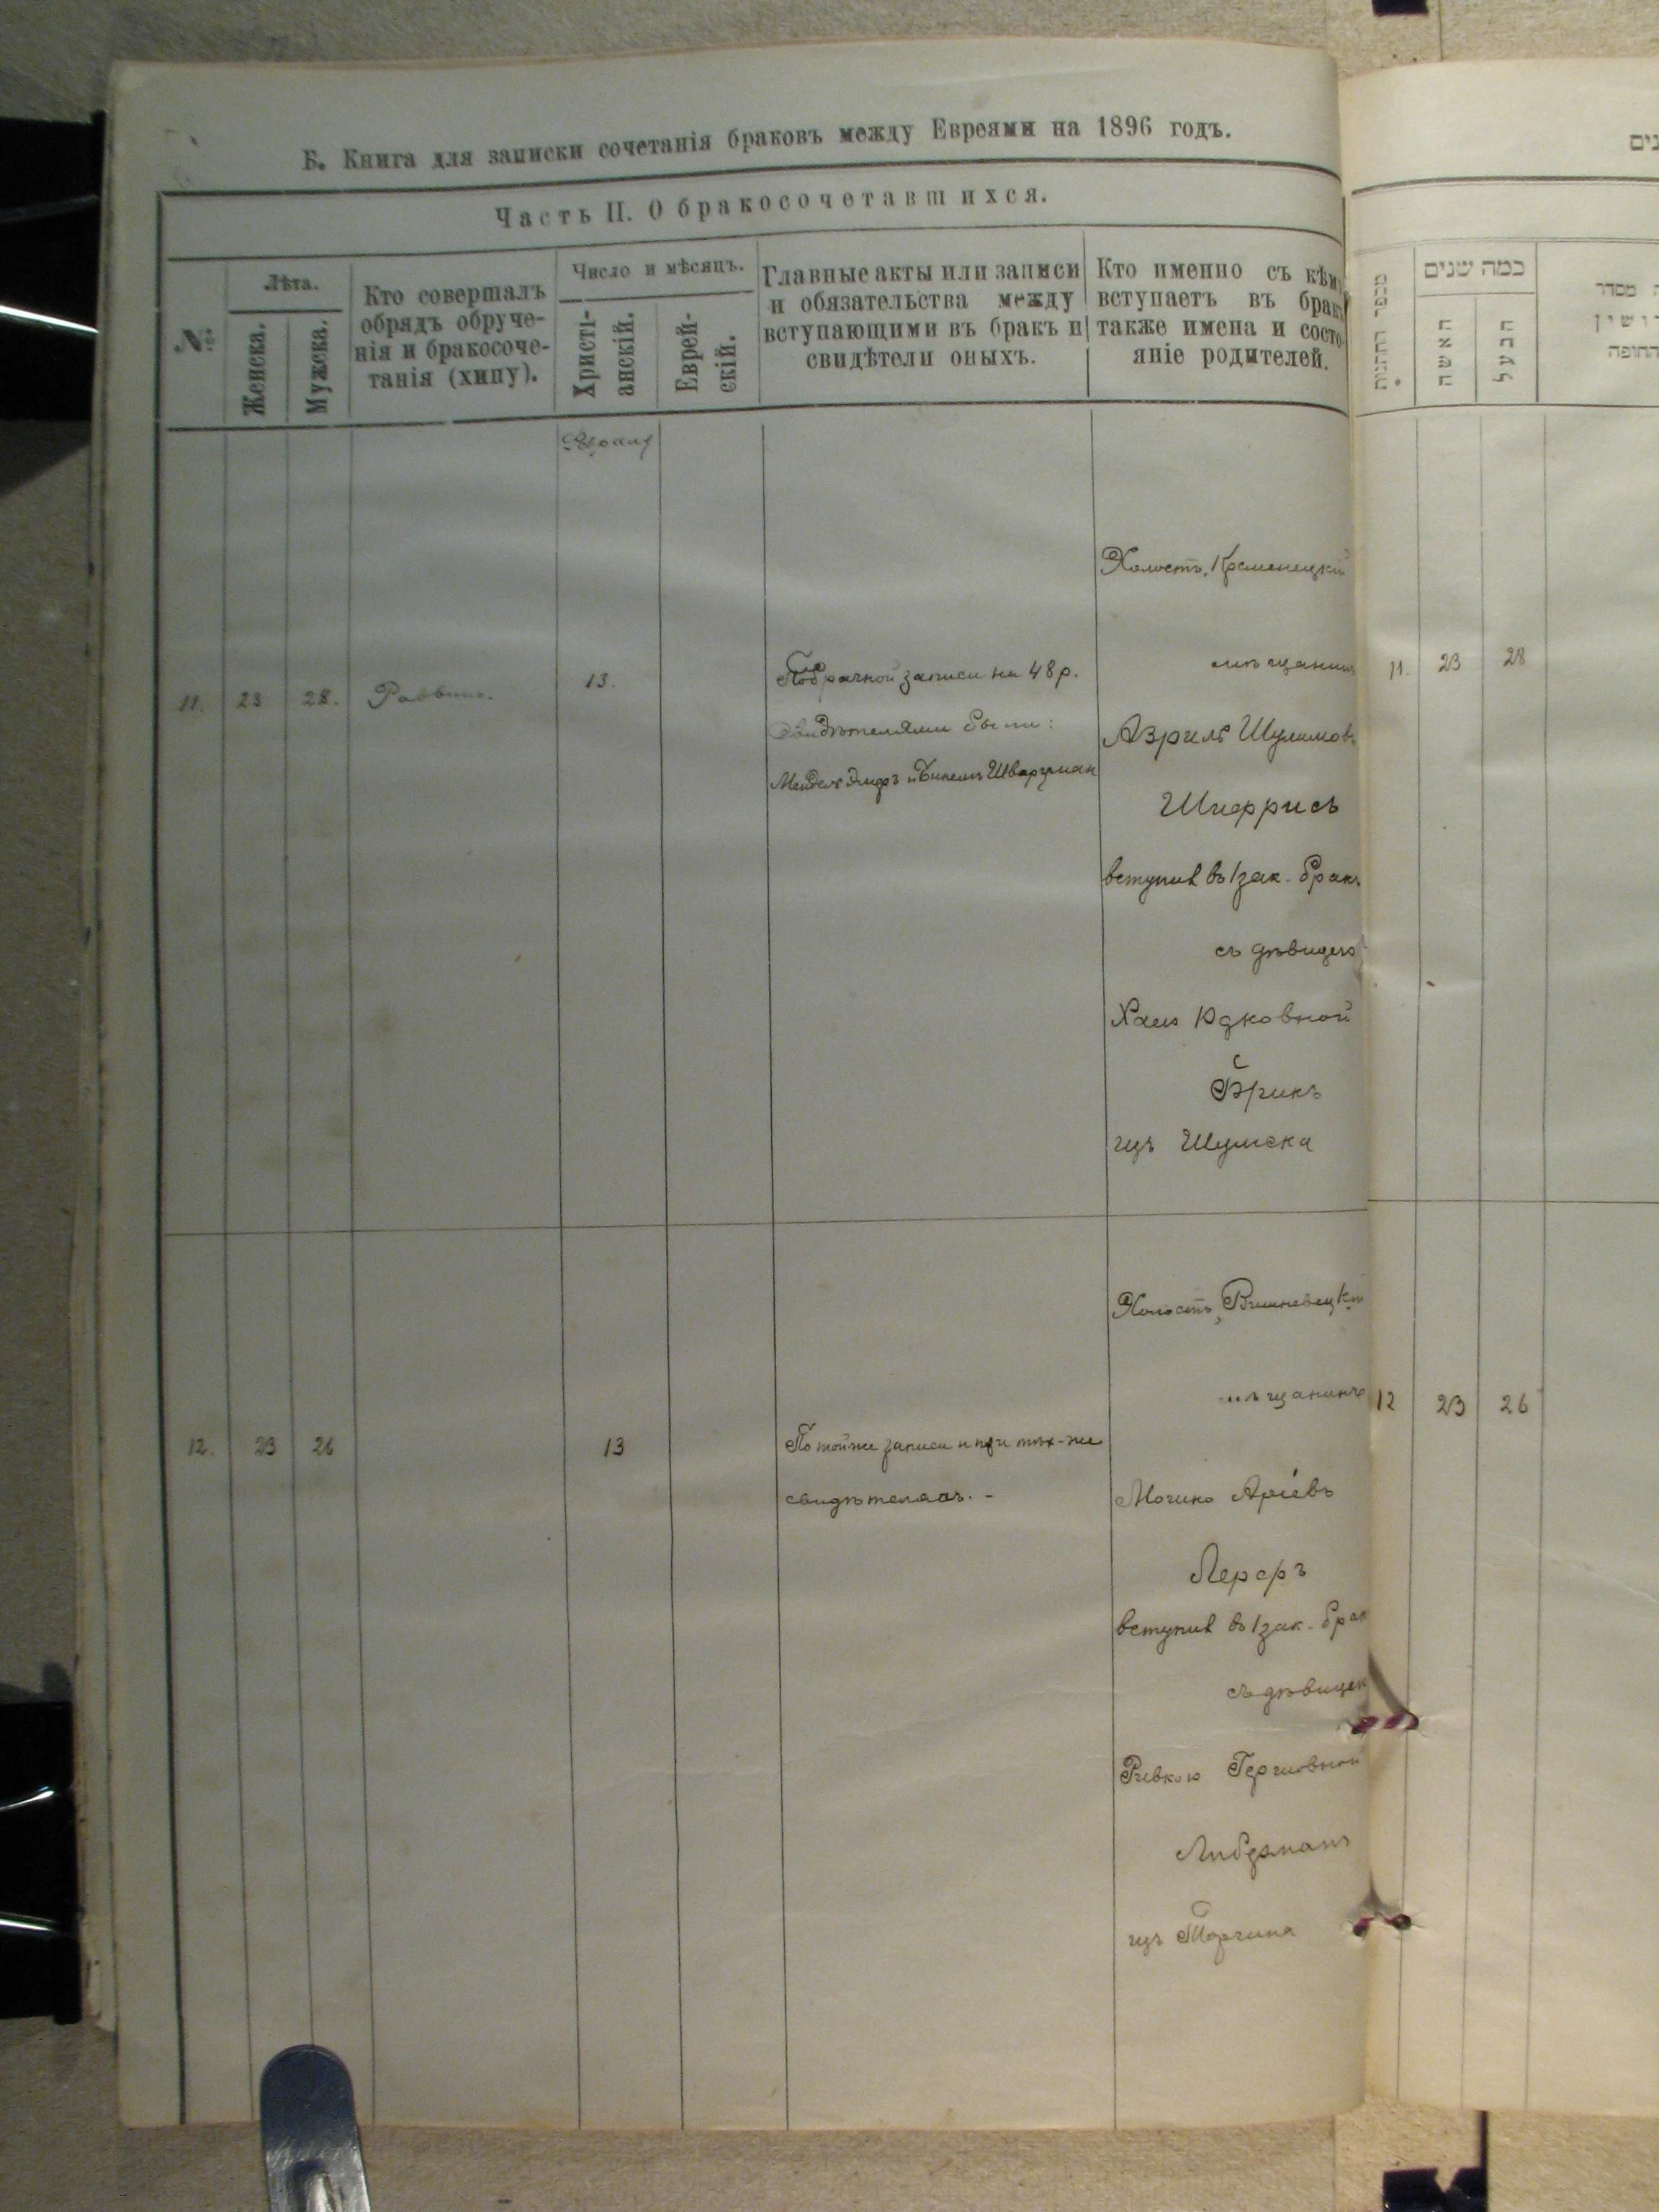 Б. Книга для записки сочетанія браковъ между Евреями на 1896 годъ.
Часть II. О бракосочетавшихся.
№
Лѣта.
Женска.
Мужска.
Кто совершалъ
обрядъ обруче-
нія и бракосоче-
танія (хипу).
Число и мѣсяцъ.
Христі-
анскій.
Еврей-
скій.
Главные акты или записи
и обязательства между
вступающими въ бракъ и
свидѣтели оныхъ.
Кто именно съ кѣмъ
вступаетъ въ бракъ
также имена и состо-
яніе родителей.
11. 23 28. Раввинъ. 13.
По брачной записи на 48 р.
Свидѣтелями были:
Мендель и Шварцман
Холостъ, Кременецкій
мѣщанинъ
Азриль Шулимовъ
вступил въ 1 зак. бракъ
съ дѣвицею
Хаею Юдковной
Брикъ
изъ Шумска
12. 23 26 13
По той же записи и при тѣх-же
свидѣтеляхъ. -
Холостъ, Вишневецкій
мѣщанинъ
Мошко Аріевъ
Лерфъ
вступил въ 1 зак. брак
съ дѣвицею
Ривкою Гершовной
Либерманъ
изъ
נים
מספר החתונות
כמה שנים
האשה
הבעל
מסדר
ושין
החופה
11. 23 28
12 23 26